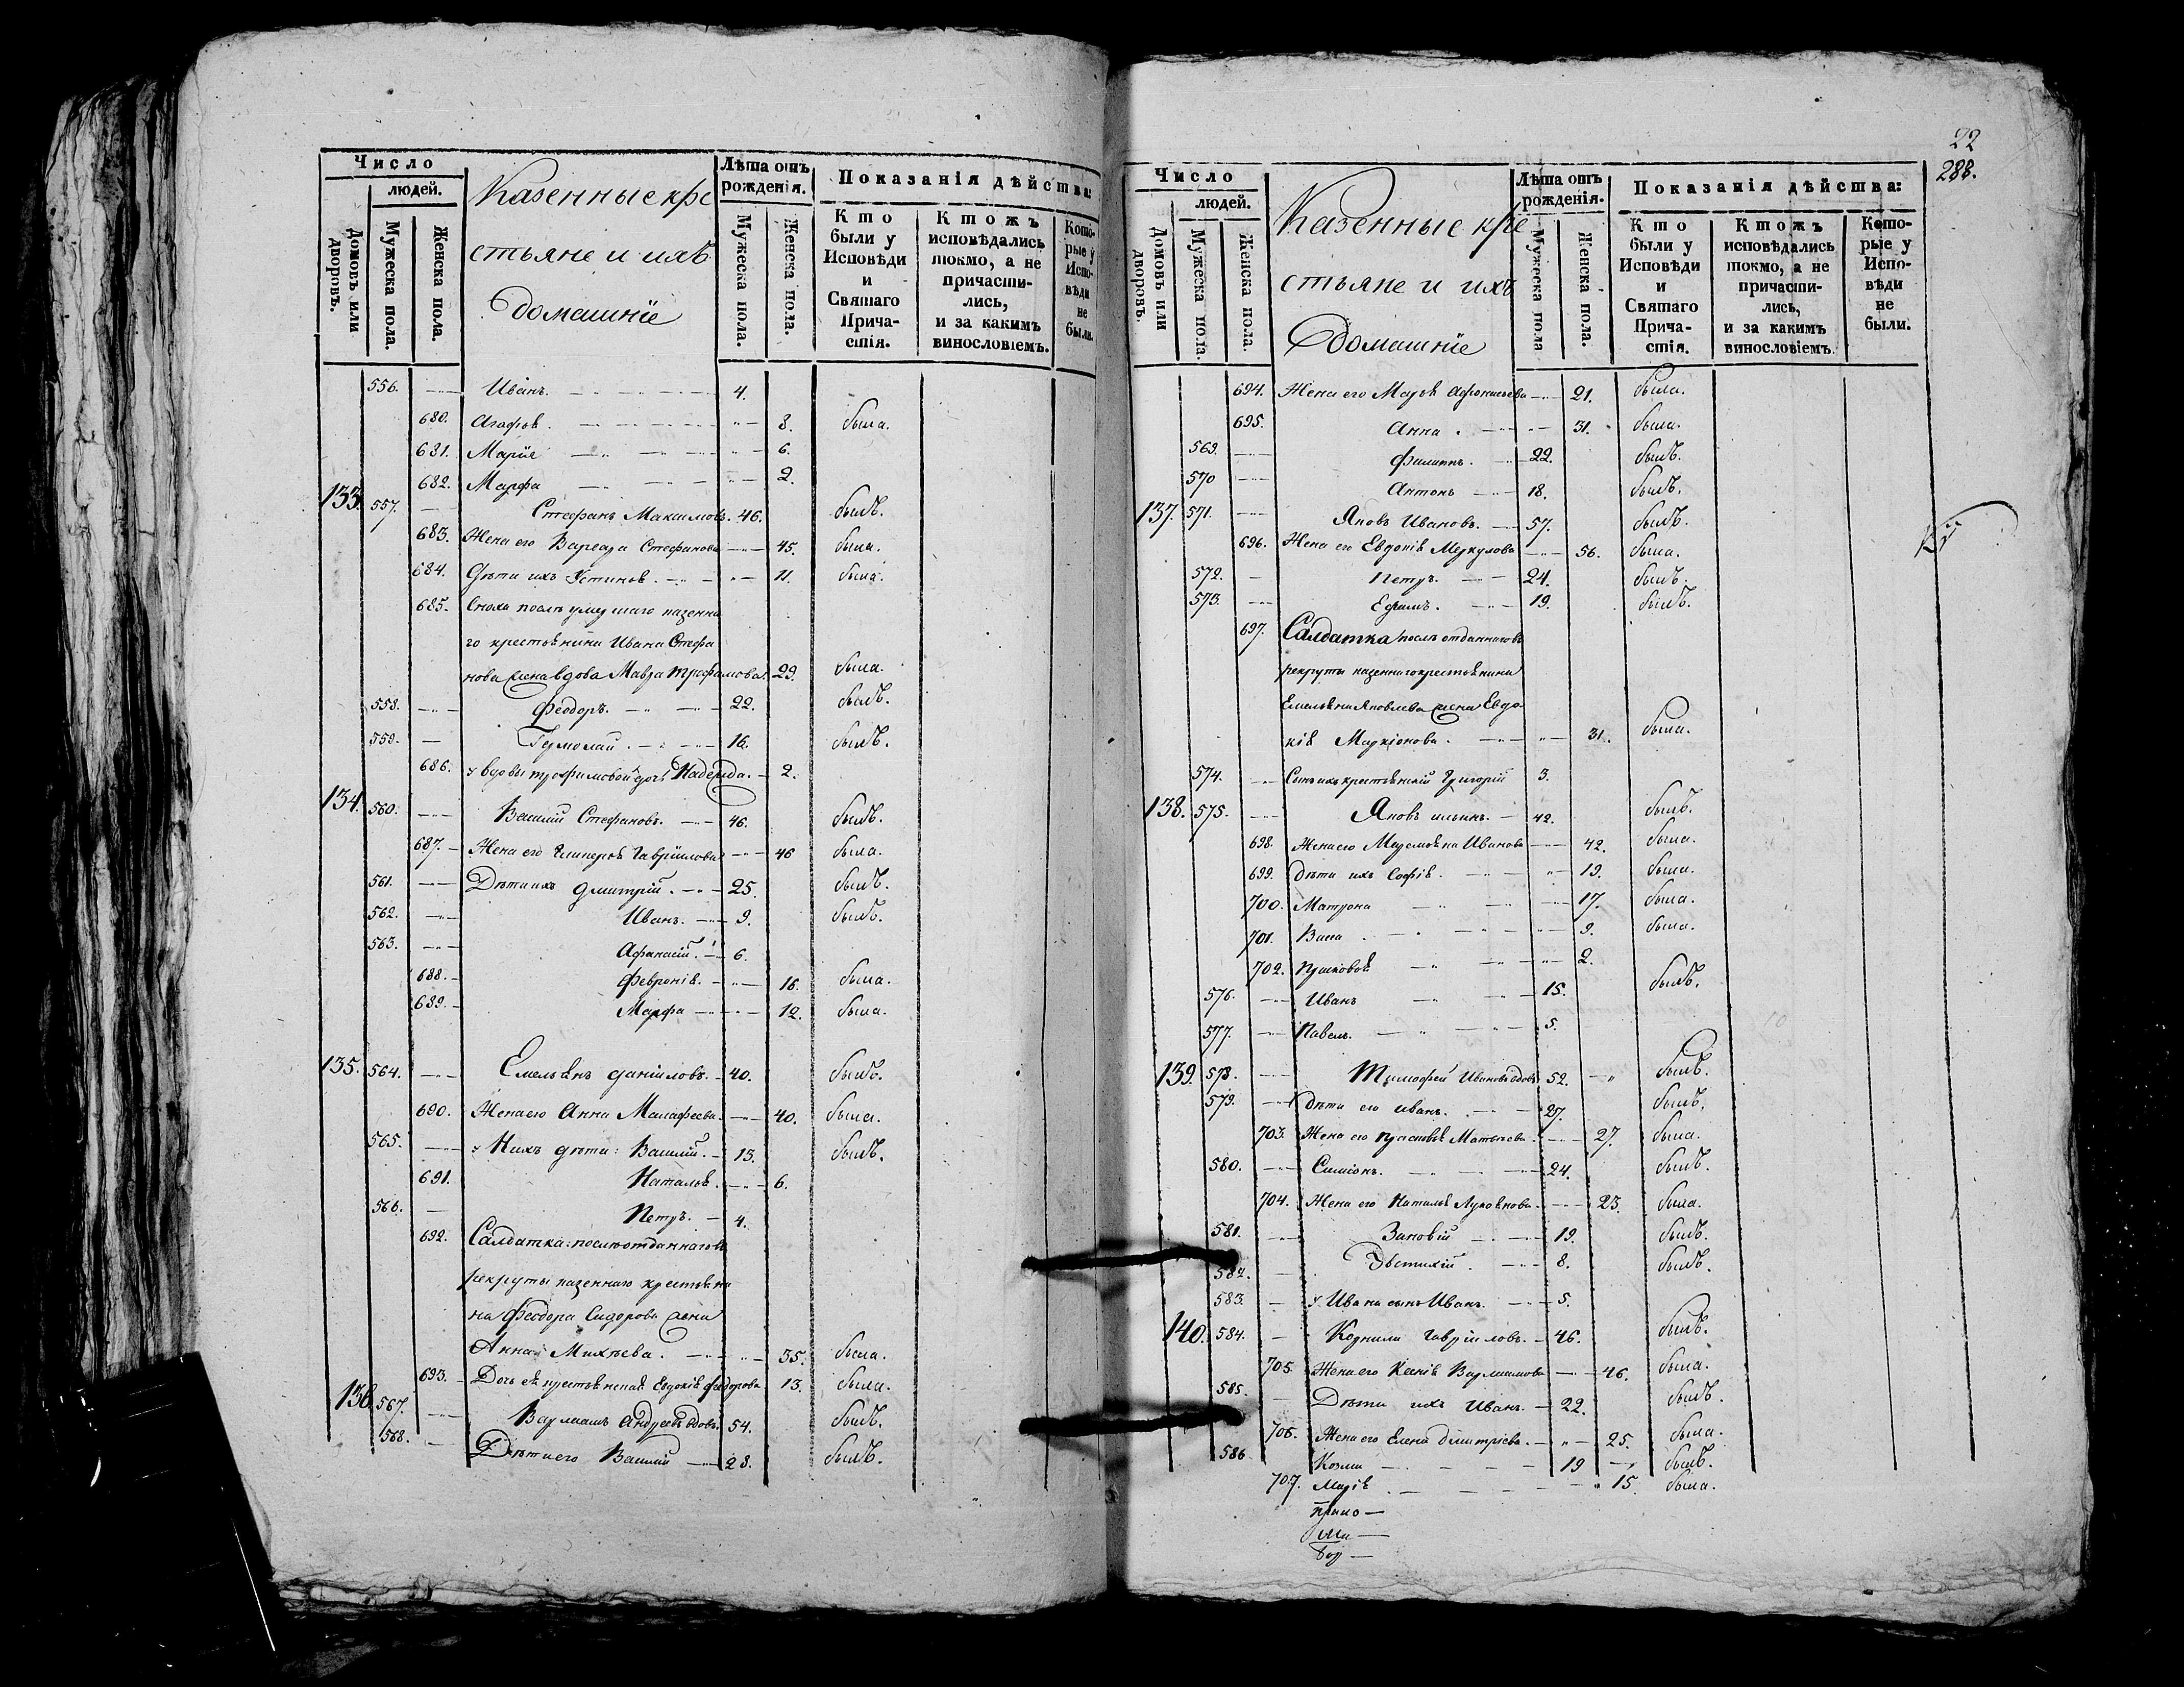 Число
людей.
Домовъ или дворовъ.
Мужеска пола.
Женска пола.
Казенные кре
стьяне и ихъ
домашніе
Лѣта отъ рожденія.
Мужеска пола.
Женска пола.
Показанія дѣйства:
Кто были у Исповѣди и Святаго Прича-стія.
Ктожъ исповѣдались токмо, а не причасти-лись, и за какимъ винословіемъ.
Кото-рые у Испо-вѣди не были.
556. Иванъ. 4.
680. Агафья. 8. была.
681. Марія 6.
682. Марфа 2.
133. 557. Стефанъ Максимовъ. 46. былъ.
683. Жена его Варвара Стефанова 45. была.
684. Дѣти ихъ Устинья. 11. была.
685. Сноха послѣ умершаго казенна
го крестьянина Ивана Стефа
нова жена вдова Мавра Трофимова. 29. была.
558. Феодоръ. 22. былъ.
559. Ермолай. 16. былъ.
686. у вдовы Трофимовой дочь Надежда. 2.
134. 560. Василій Стефановъ. 46. былъ.
687. Жена его Гликерья Гавріилова 46 была.
561. Дѣти ихъ Дмитрій. 25. былъ.
562. Иванъ. 9. былъ.
563. Афанасій. 6.
688. Февронія. 16. была.
689. Марфа 12. была.
135. 564. Емельянъ Даніиловъ. 40. былъ.
690. Жена его Анна Малафеева. 40. была.
565. у Нихъ дѣти: Василій. 13. былъ.
691. Наталья. 6.
566. Петръ. 4.
692. Салдатка: послѣ отданнаго въ
рекруты казеннаго крестьяни
на Феодора Сидорова жена
Анна Михѣева. 35. была.
693. Дочь ея крестьянская Евдокія Федорова 13. была.
136. 567. Варлаамъ Андреевъ вдовъ. 54. былъ.
568. Дѣти его Василій 28. былъ.
22
288.
Число
людей.
Домовъ или дворовъ.
Мужеска пола.
Женска пола.
Казенные кре
стьяне и ихъ
домашніе
Лѣта отъ рожденія.
Мужеска пола
Женска пола.
Показанія дѣйства:
Кто были у Исповѣди и Святаго Прича-стія.
Ктожъ исповѣдались токмо, а не причасти-лись, и за какимъ винословіемъ.
Кото-рые у Испо-вѣди не были.
694. Жена его Марья Афонасьева 21. была.
695. Анна. 31. была.
569. Филиппъ. 22. былъ.
570 Антонъ 18. былъ.
137. 571. Яковъ Ивановъ. 57. былъ.
696. Жена его Евдокія Меркулова 56. была.
572. Петръ. 24. былъ.
573. Ефимъ. 19. былъ.
697. Салдатка послѣ отданнаго въ
рекруты казеннаго крестьянина
Емельяна Яковлева жена Евдо
кія Маркіонова. 31. была.
574. Сынъ ихъ крестьянскій Григорій 3.
138. 575. Яковъ Ильинъ. 42. былъ.
698. Жена его Маремьяна Иванова 42. была.
699. Дѣти ихъ Софія. 19. была.
700. Матрона 17. была.
701. Васса. 9. была.
702. Прасковья 2.
576. Иванъ 15. былъ.
577. Павелъ. 5.
139. 578. Тимофей Ивановъ вдовъ 52. былъ.
579. Дѣти его Иванъ. 27. былъ.
703. Жена его Прасковья Матвѣева. 27. была.
580. Симіонъ. 24. былъ.
704. Жена его Наталья Лукоянова. 23. была.
581. Зиновій 19. былъ.
582. Евстихій. 8. былъ.
583. у Ивана сынъ Иванъ. 5.
140. 584. Корнили Гавріиловъ. 46. былъ.
705. Жена его Ксенія Варламова 46. была.
585. Дѣти ихъ Иванъ. 22. былъ.
706. Жена его Елена Дмитріева. 25. была.
586 Козма 19 былъ.
707. Марія 15. была.